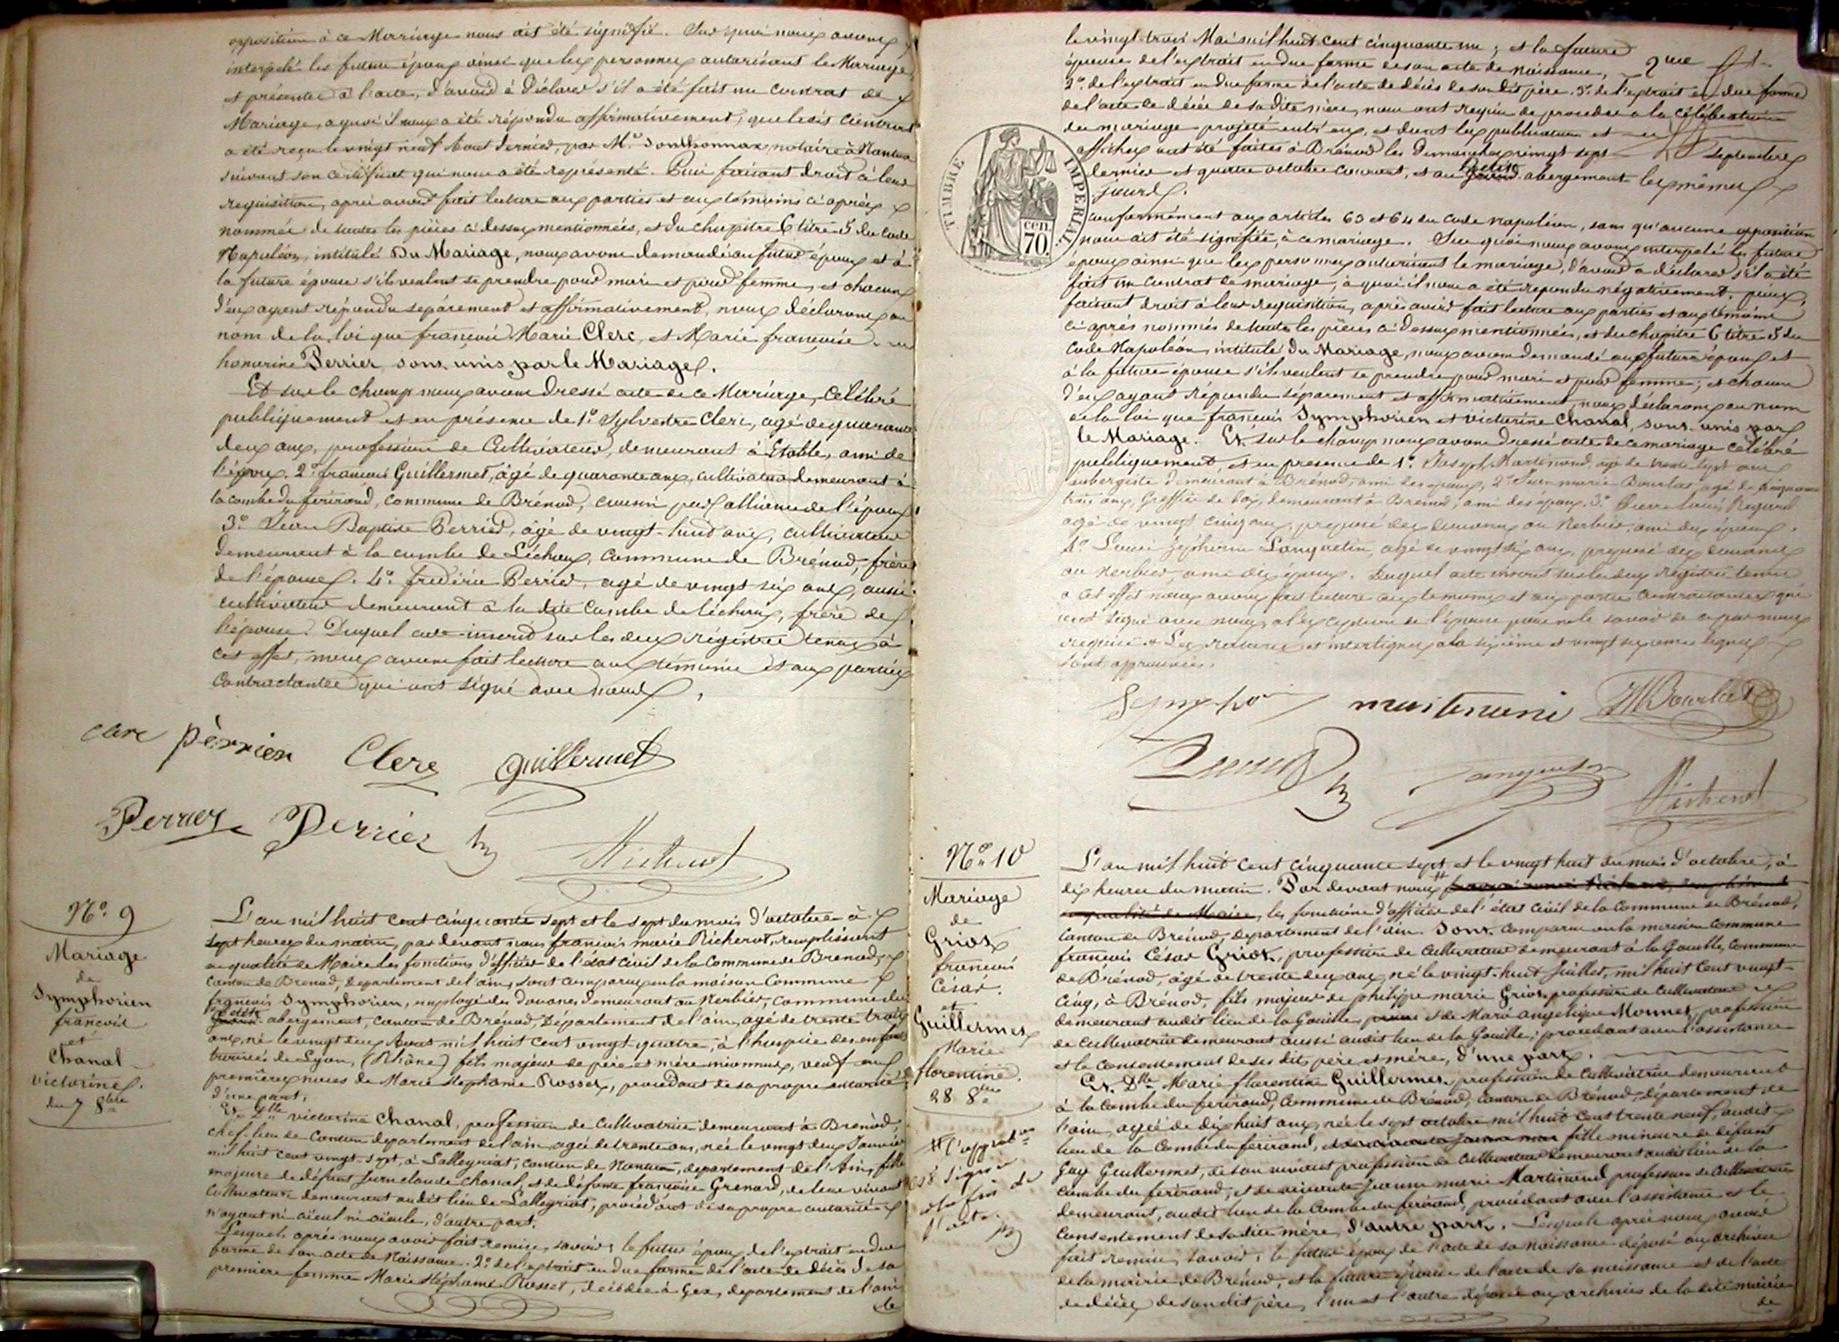 opposition à ce Mariage nous ait été signifié. Sur quoi nous avons
interpelé les futurs époux ainsi que les personnes autorisant le Mariage
et présentes à l'acte, d'avoir à Déclarer s'il a été fait un contrat de
Mariage, à quoi il nous a été répondu affirmativement, que ledit contrat
a été reçu le vingt neuf Aout dernier, par Me Sonthonnax, notaire à Nantua
suivant son certificat qui nous a été représenté. Puis faisant droit à leur
requisition, après avoir fait lecture aux parties et aux témoins ci après
nommés de toutes les pièces ci dessus mentionnées, et du chapitre 6 titre 5 du Code
Napoléon, intitulé Du Mariage, nous avons demandé au futur époux et à
la future épouse s'ils veulent se prendre pour mari et pour femme, et chacun
d'eux ayant répondu séparement et affirmativement, nous déclarons au
nom de la loi que françois Marie Clerc, et Marie françoise
honorine Perrier, sont unis par le Mariage.
Et sur le champ nous avons dressé acte de ce Mariage, célébré
publiquement et en présence de 1° Sylvestre Clerc, agé de quarante
deux ans, profession de Cultivateur, demeurant à Etables, ami de
l'époux. 2° francois Guillermet, âgé de quarante ans, cultivateur demeurant à
la combe du ferirond, commune de Brénod, cousin par alliance de l'époux.
3° Jean Baptiste Perrier, âgé de vingt-huit ans, cultivateur
demeurant à la combe de Léchaux, commune de Brénod, frère
de l'épouse. 4° frédéric Perrier, agé de vingt six ans, aussi
cultivateur demeurant à la dite combe de léchaux, frère de
l'épouse. Duquel acte inscrit sur les deux régistres tenus à
cet effet, nous avons fait lecture aux témoins et aux parties
Contractantes qui ont signé avec nous.
pèrrier Clerc guillermet
Perrier Perrier Richerot
N° 9
Mariage
de
Symphorien
francois
et
Chanal
victorine.
du 7 8bre
L'an mil huit cent cinquante sept et le sept du mois d'octobre à
sept heures du matin, par devant nous francois marie Richerot, remplissant
en qualité de Maire les fonctions d'officier de l'état civil de la Commune de Brénod,
canton de Brénod, département de l'ain, sont comparus en la maison Commune
françois Symphorien, employé des douanes, demeurant au Nerbier, commune du
petit abergement, canton de Brénod, Département de l'ain, agé de trente trois
ans, né le vingt deux Avril mil huit cent vingt quatre, à l'hospice des enfans
trouvés de Lyon, (Rhône) fils majeur de père et mère inconnus, veuf en
premières noces de Marie Stéphanie Rosset, procédant de sa propre autorité
d'une part.
Et Dlle victorine Chanal, profession de Cultivatrice demeurant à Brénod,
chef-lieu de Canton département de l'ain agée de trente ans, née le vingt deux Janvier
mil huit cent vingt-sept, à Lalleyriat, canton de Nantua, département de l'Ain, fille
majeure de défunt Jean claude Chanal, et de défunte françoise Grenard, de leur vivant
cultivateurs demeurant au dit lieu de Lalleyriat, procédant de sa propre autorité
n'ayant ni aïeul ni aïeule, d'autre part.
Lesquels après nous avoir fait remise, savoir; le futur époux, de l'extrait en due
forme de son acte de Naissance. 2° de l'extrait en due forme de l'acte de décès de sa
première femme Marie Stéphanie Rosset, décédée à Gex, département de l'ain
le
le vingt trois Mai mil huit cent cinquante un; et la future
épouse de l'extrait en due forme de son acte de Naissance,
2° de l'extrait en due forme de l'acte de décès de son dit père. 3° de l'extrait en due forme
de l'acte de décès de sa dite mère, nous ont requis de procéder à la célébration
du mariage projeté entr'eux, et dont les publications et
affiches ont été faites à Brénod les dimanches vingt sept septembre
dernier et quatre octobre courant, et au petit abergement les mêmes
jours.
TIMBRE IMPERIAL
CEN. 70.
conformément aux articles 63 et 64 du code napoléon, sans qu'aucune opposition
nous ait été signifiée à ce mariage. Sur quoi nous avons interpelé les futurs
époux ainsi que les personnes autorisant le mariage, d'avoir à déclarer s'il a été
fait un contrat de mariage, à quoi il nous a été répondu négativement. puis,
faisant droit à leur requisition, après avoir fait lecture aux parties et aux témoins
ci après nommés de toutes les pièces ci dessus mentionnées, et du chapitre 6 titre 5 du
Code Napoléon, intitulé Du Mariage, nous avons demandé au futur époux et
à la future épouse s'ils veulent se prendre pour mari et pour femme; et chacun
d'eux ayant répondu séparement et affirmativement, nous déclarons au nom
de la loi que françois Symphorien et victorine Chanal, sont unis par
le Mariage. Et sur le champ nous avons dressé acte de ce mariage célébré
publiquement, et en présence de 1° Joseph Martinand, agé de trente sept ans
aubergiste demeurant à Brénod, ami des époux, 2° Jean marie Bourbat, agé de cinquante
trois ans, Greffier de paix, demeurant à Brénod, ami des époux, 3° Pierre Louis
agé de vingt cinq ans, préposé des douanes au Nerbier, ami des époux.
4° Louis Zéphirin Languetin, agé de vingt six ans, préposé des douanes
au Nerbier, ami des époux. Duquel acte inscrit sur les deux régistres tenus
à cet effet nous avons fait lecture aux témoins et aux parties contractantes qui
ont signé avec nous, à l'exception de l'épouse pour ne le savoir de ce par nous
requise. Les ratures et interlignes à la sixième et vingt
sont approuvées.
Sympho martinand JMBourbat
Languetin Richerot
N° 10
Mariage
de
Griot
francois
César
et
Guillermet
Marie
florentine.
28 8bre
L'an mil huit cent cinquante sept et le vingt huit du mois d'octobre, à
dix heures du matin. Par devant nous
les fonctions d'officier de l'état civil de la Commune de Brénod,
canton de Brénod, département de l'ain. Sont comparus en la maison commune
francois César Griot, profession de cultivateur demeurant à la Gouille, commune
de Brénod, âgé de trente deux ans, né le vingt-huit Juillet, mil huit cent vingt-
cinq, à Brénod, fils majeur de philippe marie Griot profession de cultivateur
demeurant audit lieu de la Gouille et de Marie angélique Monnet, profession
de Cultivatrice demeurant aussi audit lieu de la Gouille; procédant avec l'assistance
et le consentement de ses dits père et mère, d'une part.
Et Dlle Marie florentine Guillermet, profession de Cultivatrice demeurant
à la Combe du ferirond, commune de Brénod, canton de Brénod, département de
l'ain, agée de dix huit ans, née le sept octobre mil huit cent trente neuf, audit
lieu de la Combe du férirond, fille mineure de défunt
Guy Guillermet, de son vivant profession de Cultivateur demeurant audit lieu de la
combe du ferirond, et de vivante Jeanne marie Martinand, profession de Cultivatrice
demeurant, audit lieu de la Combe du ferirond, procédant avec l'assistance et le
consentement de sa dite mère, d'autre part. Lesquels après nous avoir
fait remise, savoir, le futur époux de l'acte de sa naissance déposé aux archives
de la mairie de Brénod, et la future épouse de l'acte de sa naissance et de l'acte
de décès de son dit père, l'un et l'autre déposés aux archives de la dite mairie
de